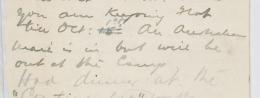 you are keeping that
till Oct: 1st An Australian
mail is in but will be
out at the Camp
Had dinner at the